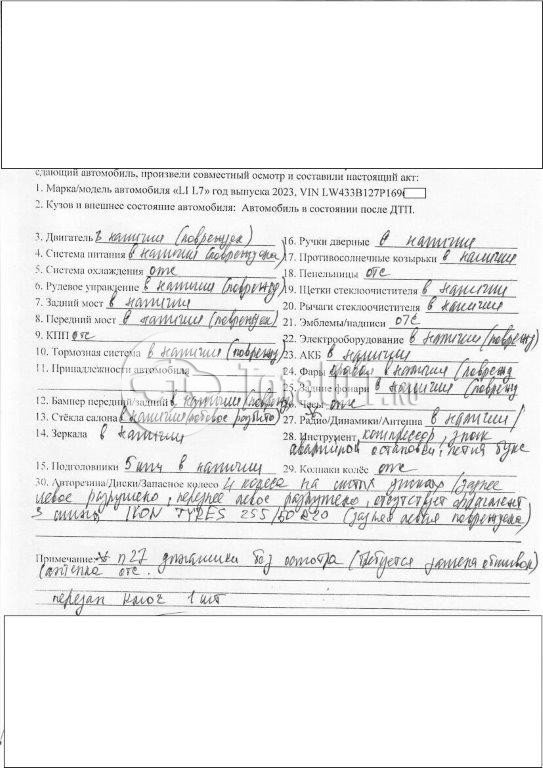 сдающий автомобиль, произвели совместный осмотр и составили настоящий акт:
1. Марка/модель автомобиля «LI L7» год выпуска 2023, VIN LW433B127P169
2. Кузов и внешнее состояние автомобиля: Автомобиль в состоянии после ДТП.
3. Двигатель в наличии (поврежден)
4. Система питания в наличии (повреждена)
5. Система охлаждения отс
6. Рулевое управление в наличии (поврежд)
7. Задний мост в наличии
8. Передний мост в наличии (поврежден)
9. КПП отс
10. Тормозная система в наличии (поврежд)
11. Принадлежности автомобиля
12. Бампер передний/задний в наличии (поврежд)
13. Стёкла салона в наличии (лобовое разбито)
14. Зеркала в наличии
15. Подголовники 5 шт в наличии
16. Ручки дверные в наличии
17. Противосолнечные козырьки в наличии
18. Пепельницы отс
19. Щетки стеклоочистителя в наличии
20. Рычаги стеклоочистителя в наличии
21. Эмблемы/надписи отс
22. Электрооборудование в наличии (поврежд)
23. АКБ в наличии
24. Фары правая в наличии (поврежд
25. Задние фонари в наличии (поврежд
26. Часы отс
27. Радио/Динамики/Антенна в наличии/
28. Инструмент компрессор, знак
аварийной остановки, петля букс
29. Колпаки колёс отс
30. Авторезина/Диски/Запасное колесо 4 колеса на литых дисках (заднее
левое разрушено, переднее левое разрушено, отсутствует фрагмент
3 шины IKON TYRES 255/50 R20 (задняя левая повреждена)
Примечание: п 27 динамики без осмотра (требуется обшивок)
(антенна отс.
передан ключ 1 шт